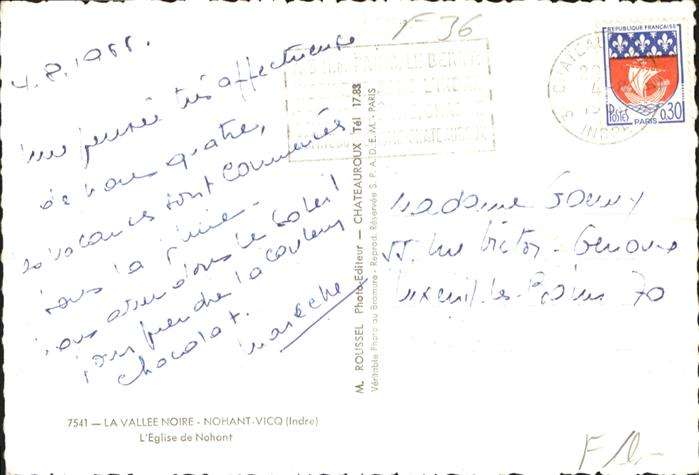 4.8.1966.
Une pensée très affectueuse
de nous quatre,
les vacances sont commencées
sous la pluie.
nous attendons le soleil
pour prendre la couleur
chocolat.
F 36
M. ROUSSEL Photo-Editeur — CHATEAUROUX Tél 17.83
Véritable Photo au Bromure - Reprod. Réservée S. P. A. D. E. M. - PARIS
REPUBLIQUE FRANÇAISE
POSTES
0,30
PARIS
INDRE
Madame
rue Victor Genoux
Luxeuil-les-Bains 70
7541 — LA VALLEE NOIRE - NOHANT-VICQ (Indre)
L'Eglise de Nohant